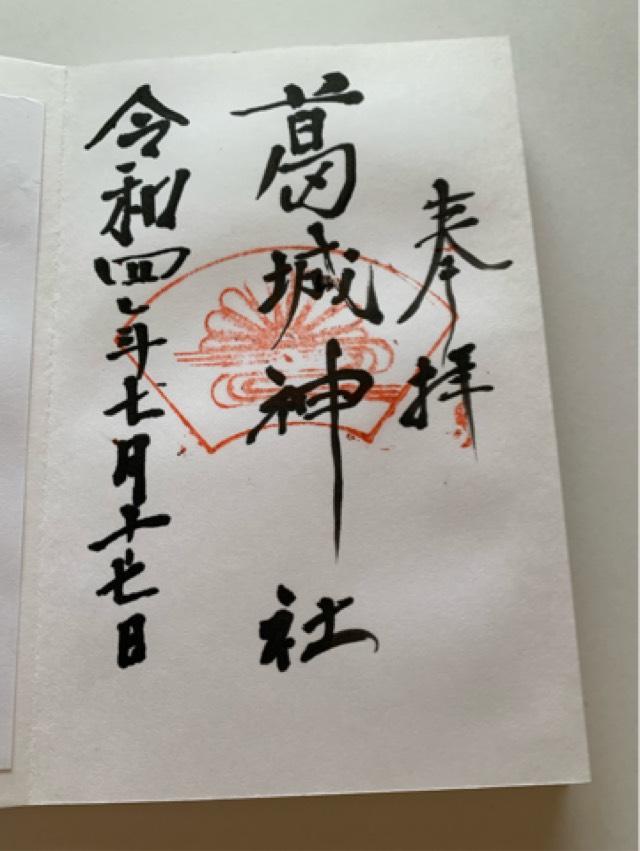 奉拝
葛城神社
令和四年七月十七日